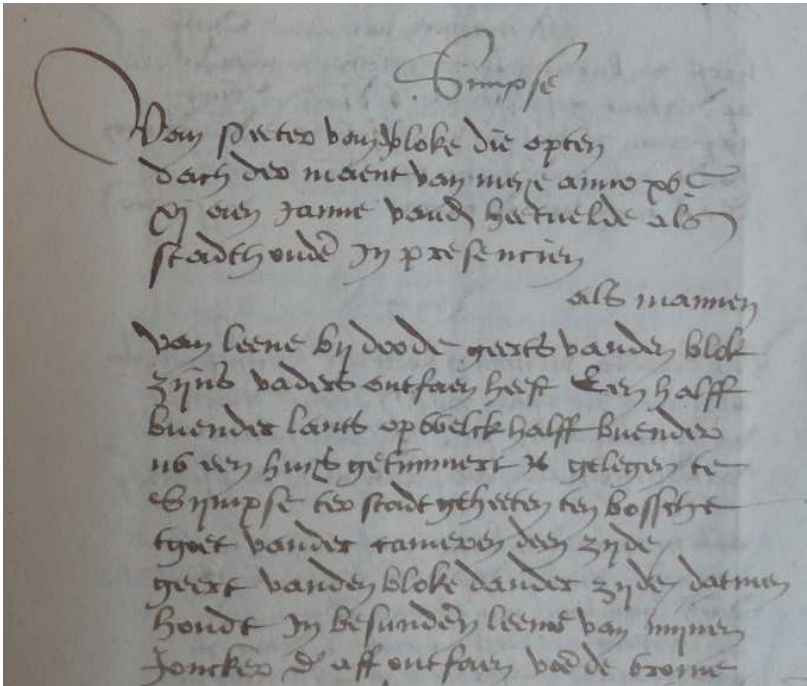 Simpse
Van Peeter vanden bloke die opten
dach der maent van meye anno xvc
xj aen Janne vanden heetvelde als
stadthoudere In presencien
als mannen
van leene bij doode geerts vanden blok
zijns vaders ontfaen heeft Een halff
buender lants op welck halff buender
nu een huijs getimmert is gelegen te
Sijmpse ter stadt geheeten ten bossche
tgoet vander cameren deen zijde
geert vanden bloke dander zijde datmen
houdt In besunderen leene van mijnen
Joncker d' aff ontfaen van de vrome